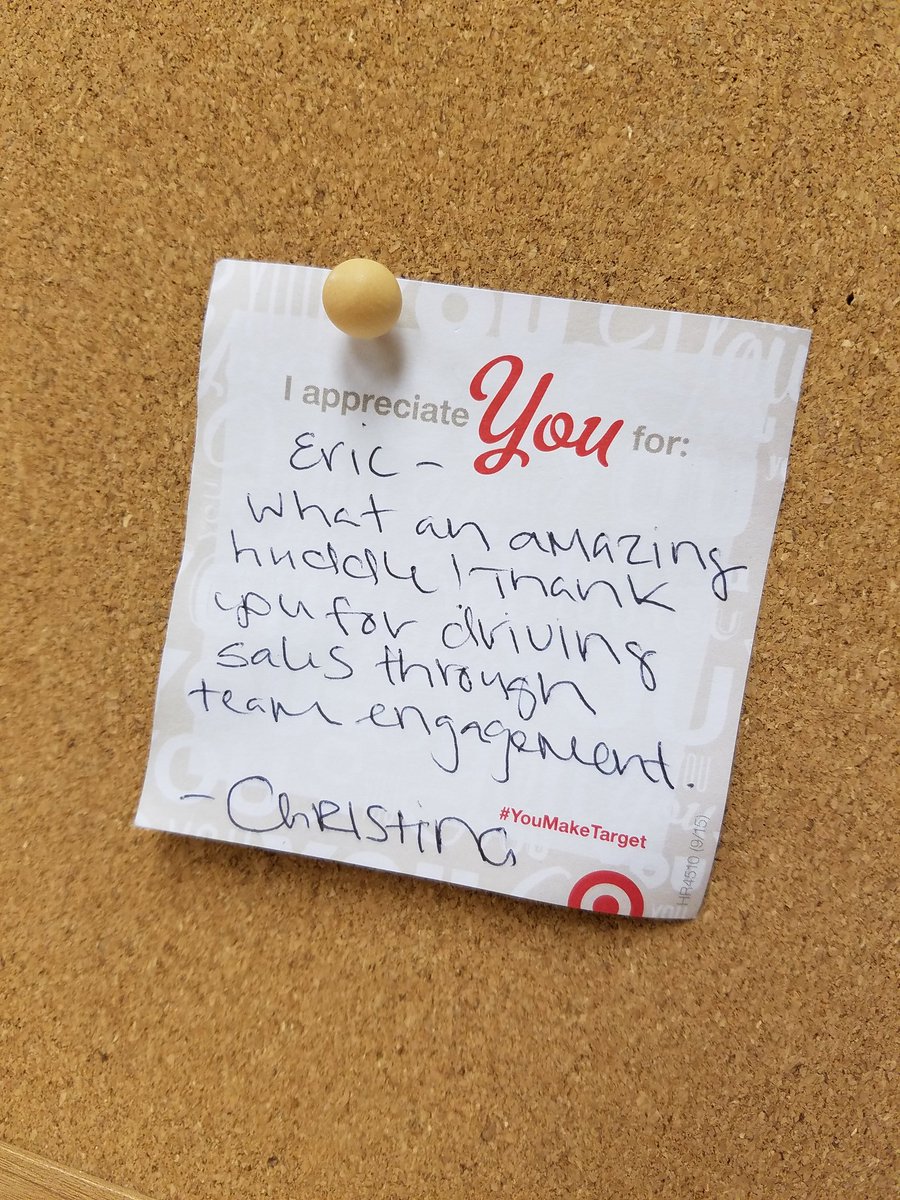 I appreciate You for:
Eric -
What an amazing
huddle! Thank
you for driving
sales through
team engagement.
- Christina
#YouMakeTarget
HR4510 (9/15)